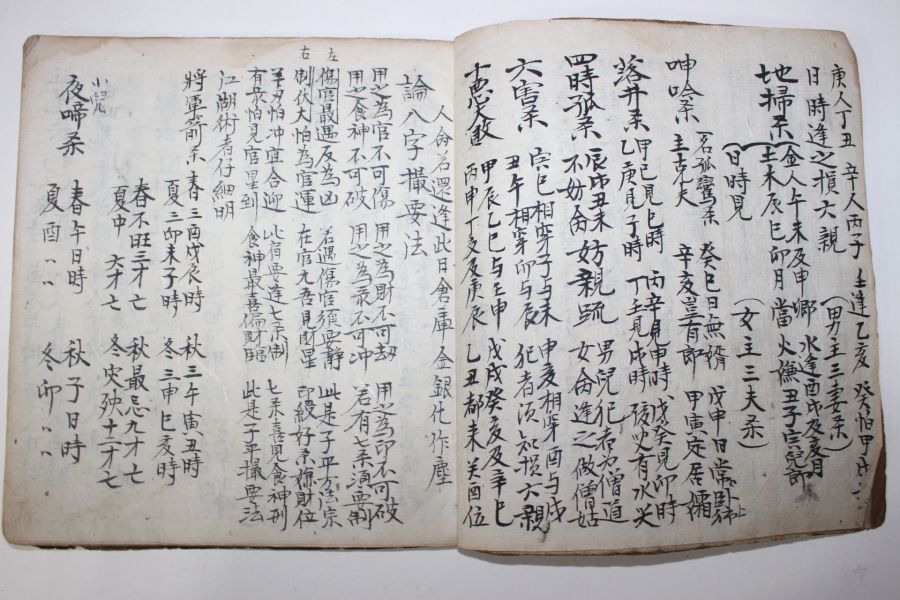 庚人丁丑 辛人丙子 壬逢乙亥 癸怕甲戌
日時逢之損六親 (男主三妻杀)
地掃杀 金人午未及申鄉 水逢酉戌及亥月
土木辰巳卯月當 火儺丑子寅兒郎
日時見 (女主三夫杀)
呻吟杀 一名孤鸞杀 癸巳日無壻 戊申日常臥師上
主克夫 辛亥豈有郎 甲寅定居孀
落井杀 甲己見巳時 丙辛見申時 戊癸見卯時
乙庚見子時 丁壬見戌時 孩兒有水災
四時孤杀 辰戌丑未妨親疏 男兒犯者为僧道
不妨命 女命逢之做僧姑
六害杀 寅巳相穿子与未 申亥相穿酉与戌
丑午相穿卯与辰 犯者須知損六親
十惡大敗 甲辰乙巳与壬申 戊戌癸亥及辛巳
丙申丁亥及庚辰 乙丑都来关酉位
人命若還逢此日倉庫金銀化作塵
論八字撮要法
用之為官不可傷 用之為財不可劫 用之為印不可破
用之食神不可破 用之為杀不可冲 若有七杀須要制
左 傷官最遇反為凶 若遇傷官須要静 此是子平方法宗
右 制伏大怕為官運 在官尤喜見財星 印綬好杀嫌財位
羊刃怕冲宜合迎 比肩要逢七杀制 七杀喜見食神刑
有杀怕見官星到 食神最喜偏財臨 此是子平撮要法
江湖術者仔細明
將軍箭杀 春三酉戌辰時 秋三午寅丑時
夏三卯未子時 冬三申巳亥時
春不旺三才亡 秋最忌九才亡
夏中六才亡 冬灾殃十二才亡
小兒
夜啼杀 春午日時 秋子日時
夏酉〃〃 冬卯〃〃